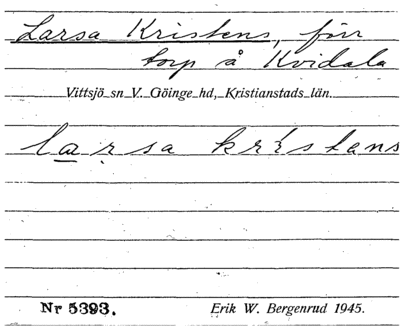 Larsa Kristens, förr
torp å Kvidala
Vittsjö sn V. Göinge hd, Kristianstads län.
larsa kristens
Nr 5393. Erik W. Bergenrud 1945.